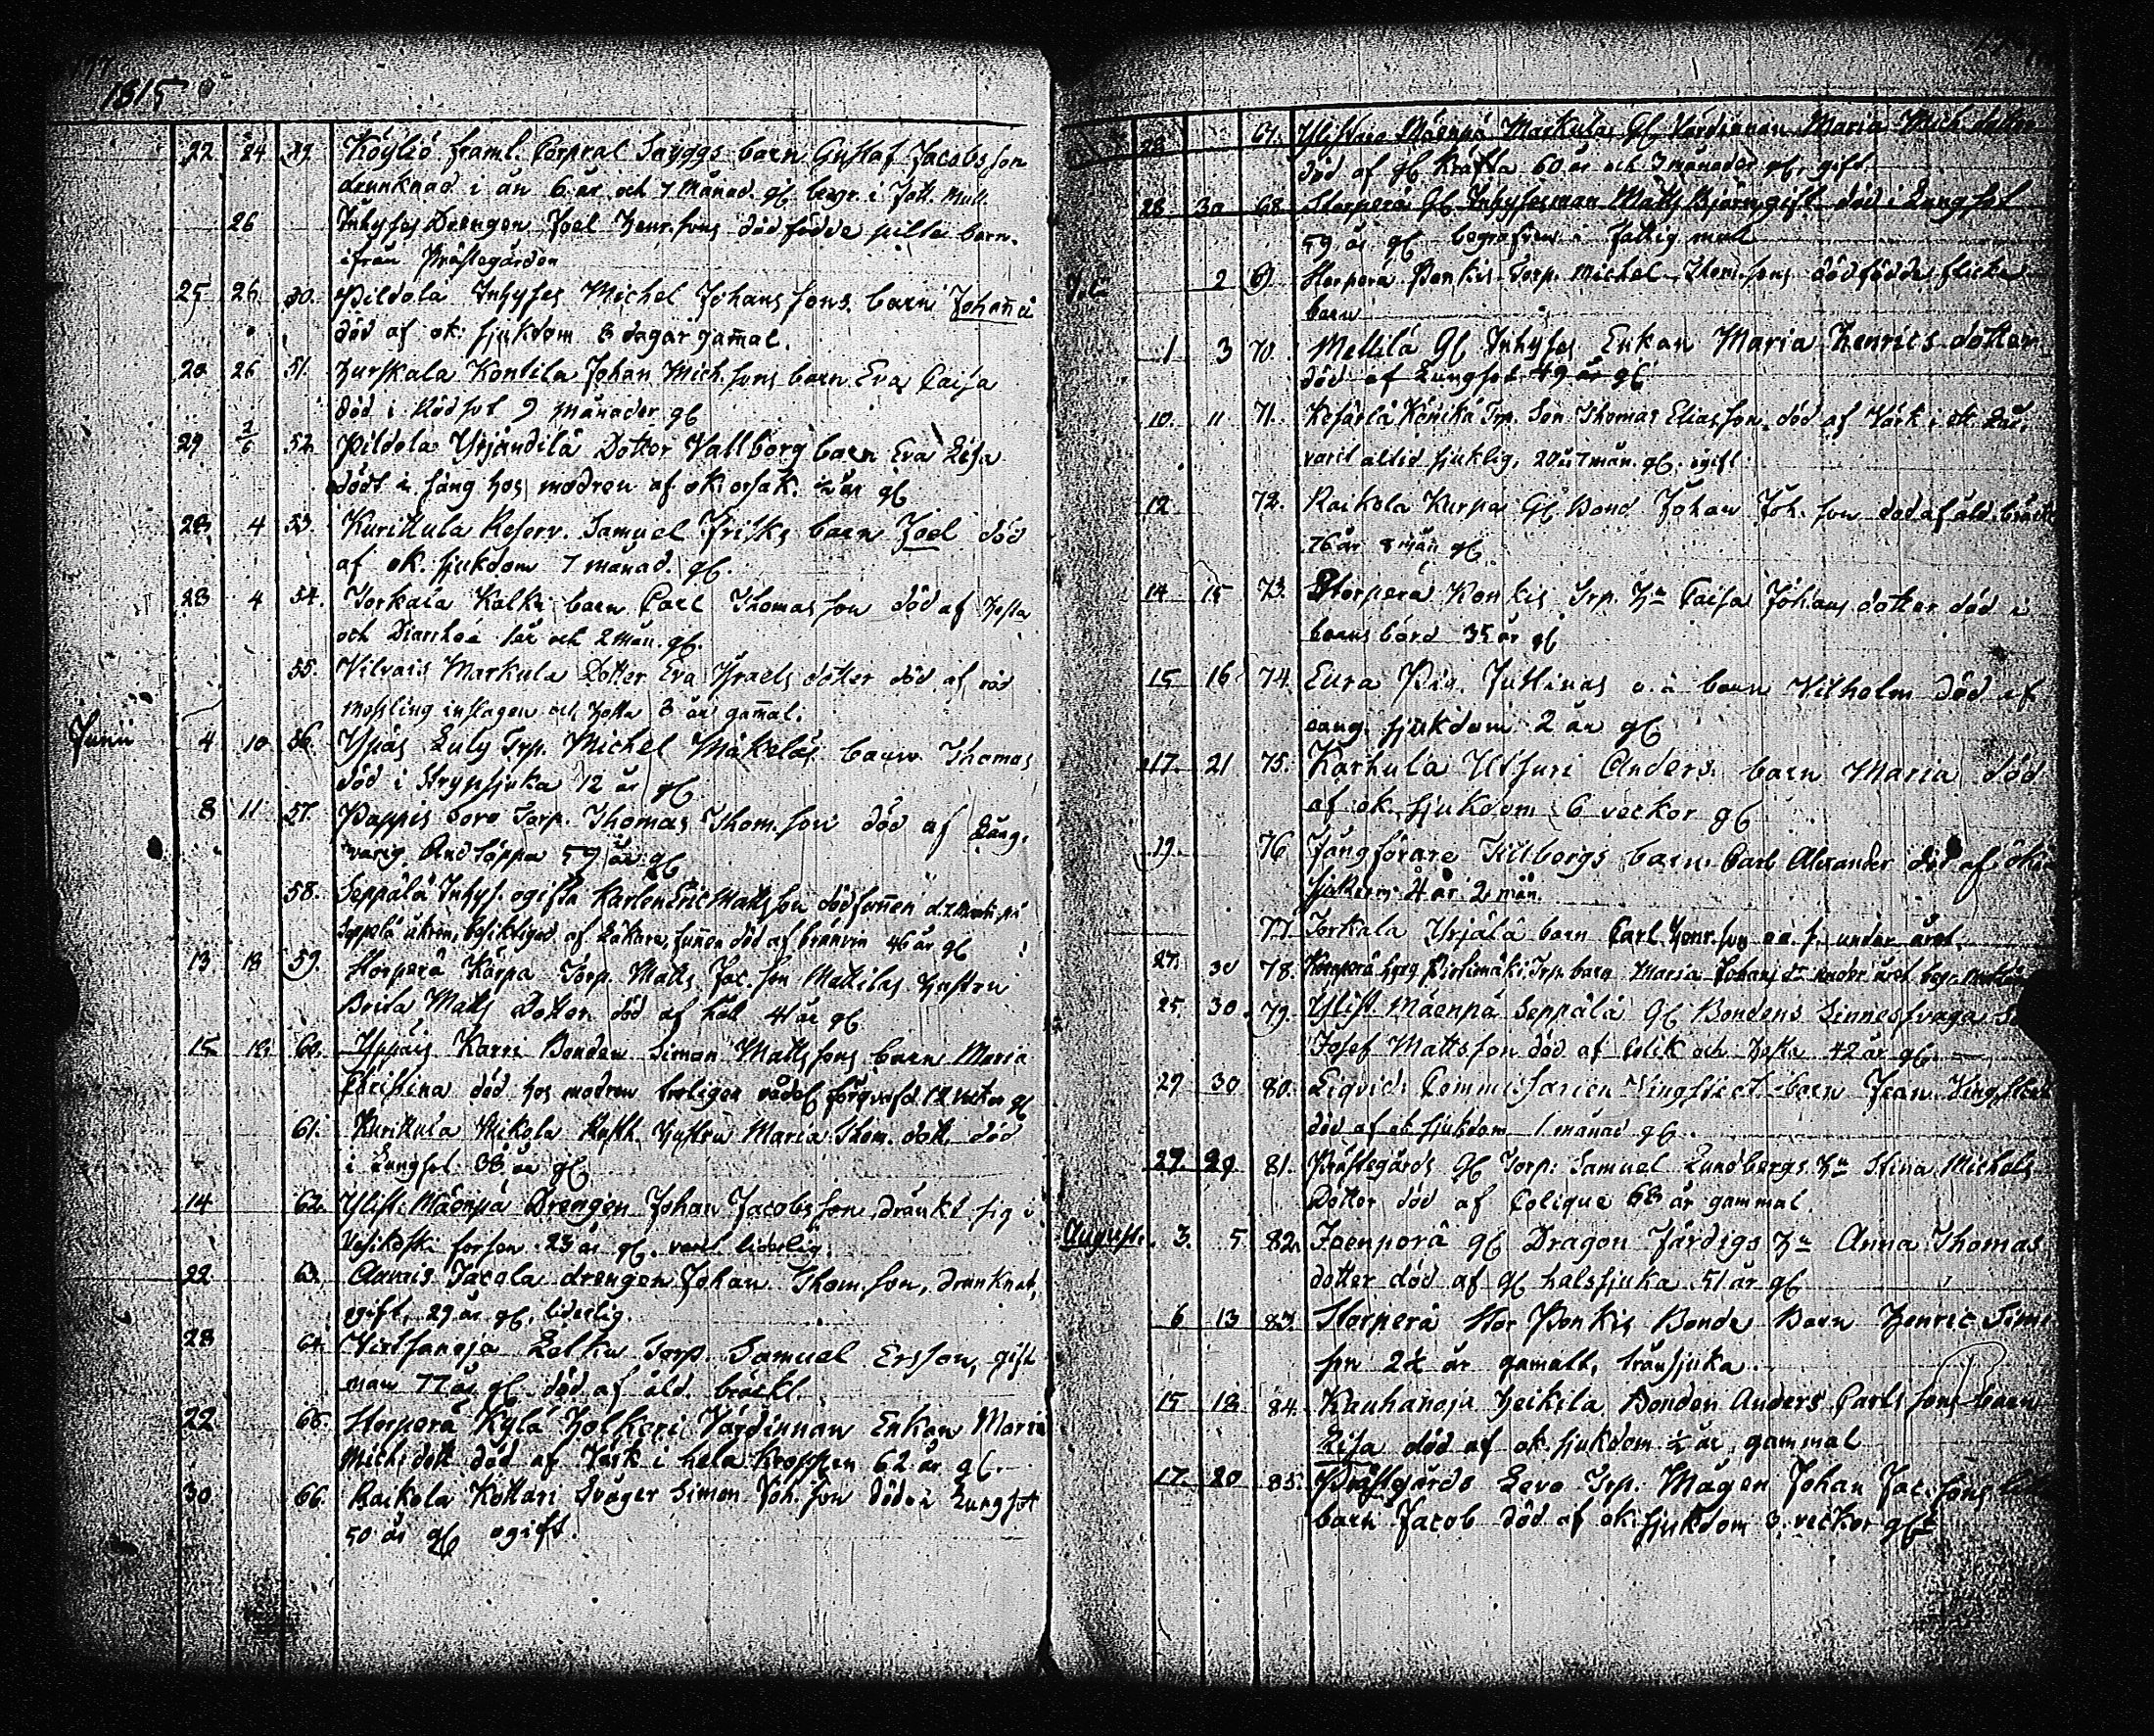 1815
22 24 29. Köyliö framl. Corpral Snyggs barn Gustaf Jacobsson
drunknad i ån 6 år och 7 Månad. gl. begr. i Fatt. Mull.
26 Inhyses Drengen Joel Henr.sons dödfödde lilla barn
ifrån Prästegården
25 26 30. Pildola Inhyses Michel Johanssons barn Johan̄a
död af ok: sjukdom 8 dagar gam̄al.
20 26 51. Hurskala Kontila Johan Mich.sons barn Eva Caisa
död i Rödsot 9 Månader gl
29 2/6 52. Pildola Yrjändilä Dotter Vallborg barn Eva Lisa
dödt i säng hos modren af ok: orsak. ½ år gl
28 4 53. Kurittula Reserv. Samuel Frisks barn Joel död
af ok. sjukdom 7 månad. gl.
23 4 54. Torkala Kalki barn Carl Thomasson död af Hosta
och Diarrhoé 1 år och 2 mån. gl.
55. Vilvais Markula Dotter Eva Israels dotter död af röd
messling inslagen och hosta 8 år gam̄al.
Junii 4 10 56. Ypäs Luly Trp. Michel Mäkeläs barn Thomas
död i Strypsjuka ½ år gl
8 11 57. Pappis Torp. Thomas Thom.son död af Lång-
varig Andtäppa 59 år gl
58. Seppälä Inhys. ogifta Karlen Eric Mattsson dödfun̄en
Seppälä åkren, besiktigad af Läkare, fun̄en död af bränvin 46 år gl
13 18 59. Storperä Kärpa Torp. Matts Jac.son Mattilas hustru
Brita Matts Dotter död af håll 41 år gl
15 18 60. Yppäis Karri Bonden Simon Mattssons barn Maria
Christina död hos modren troligen förqväfd 12 Veckor gl
61. Kurittula Mikola Rusth. Hustru Maria Thom. dott. död
i Lungsot 38 år gl
14 62. Ylist. Mäenpä Drengen Johan Jacobsson dränkt sig i
Vesikoski forsen 23 år gl. varit liderlig.
22 63. Aumis Jacola drengen Johan Thom.son, drunknat,
ogift, 29 år gl, liderlig.
28 64. Virtsanoja Torp. Samuel Ersson, gift
man 77 år gl död af åld. bräckl.
22 65. Storperä Kylä Holkeri Värdinnan Enkan Maria
Mich. dott. död af Värk i hela kroppen 62 år gl.
30 66. Raikola Kottari Svåger Simon Joh.son död i Lungsot
50 år gl ogift.
28 67. Ylistaro Mäenpä Markula Gl. Värdinnan Maria Mich. dotter
död af gl kräfta 60 år och 7 månader gl, gift
28 30 68. Storperä Gl Inhysesman Matts Björn gift död i Lungsot
59 år gl begrafven i Fattig mull
2 69. Storperä Ponkis Torp. Michel Thom.sons dödfödda flicka
barn
1 3 70. Mellilä Gl Inhyses Enkan Maria Henrics dotter
död af Lungsot 49 år gl
10. 11 71. Kesärlä Könikä Trp. Son Thomas Eliasson död af Värk i ett Lår,
varit altid sjuklig, 20 år 7 mån. gl. ogift
12 72. Raikola Kurpa Gl. Bond Johan Joh.son död af åld. bräckl
76 år 8 mån gl
14 15 73. Storperä Konkis Trp. Hu Caisa Johans dotter död i
barnsbörd 35 år gl
15 16 74. Eura Pig. Justinas o. ä barn Vilhelm död af
sjukdom 2 år gl
17. 21 75. Karhula Utsuri Anders barn Maria död
af ok. sjukdom 6 veckor gl
19. 76 Fångförare Kilbergs barn Carl Alexander död af okän
sjukdom 4 år 2 mån.
77. Torkala Yrjälä barn Carl Henr.son under året
27. 30 78. Torp barn Maria Johans dr under året
25. 30. 79. Ylist. Mäenpä Seppälä Gl Bondens Sinnessvaga
Josef Mattsson död af Colik och hosta 42 år gl.
29 30 80. Liqvid: Commissarien Vingstedt barn Jean Vingstedt
död af ok sjukdom 1 månad gl.
27. 29 81. Prästegårds Gl Torp: Samuel Lundbergs Hu Stina Michels
Dotter död af Colique 68 år gammal
August. 3. 5 82. Joenperä gl Dragon Färdigs Hu Anna Thomas
dotter död af gl halssjuka 51 år gl
6 13 83. Storperä Stor Ponkis Bonde Barn Henric Sim
son 2 ½ år gamalt, tränsjuka
15 18 84. Kauhanoja Heikila Bonden Anders Carlssons barn
Lisa död af ok sjukdom ½ år gammal
17. 20 85. Prästgårds Levo Trp. Mågen Johan Jac.sons
barn Jacob död af ok: sjukdom 3 veckor gl